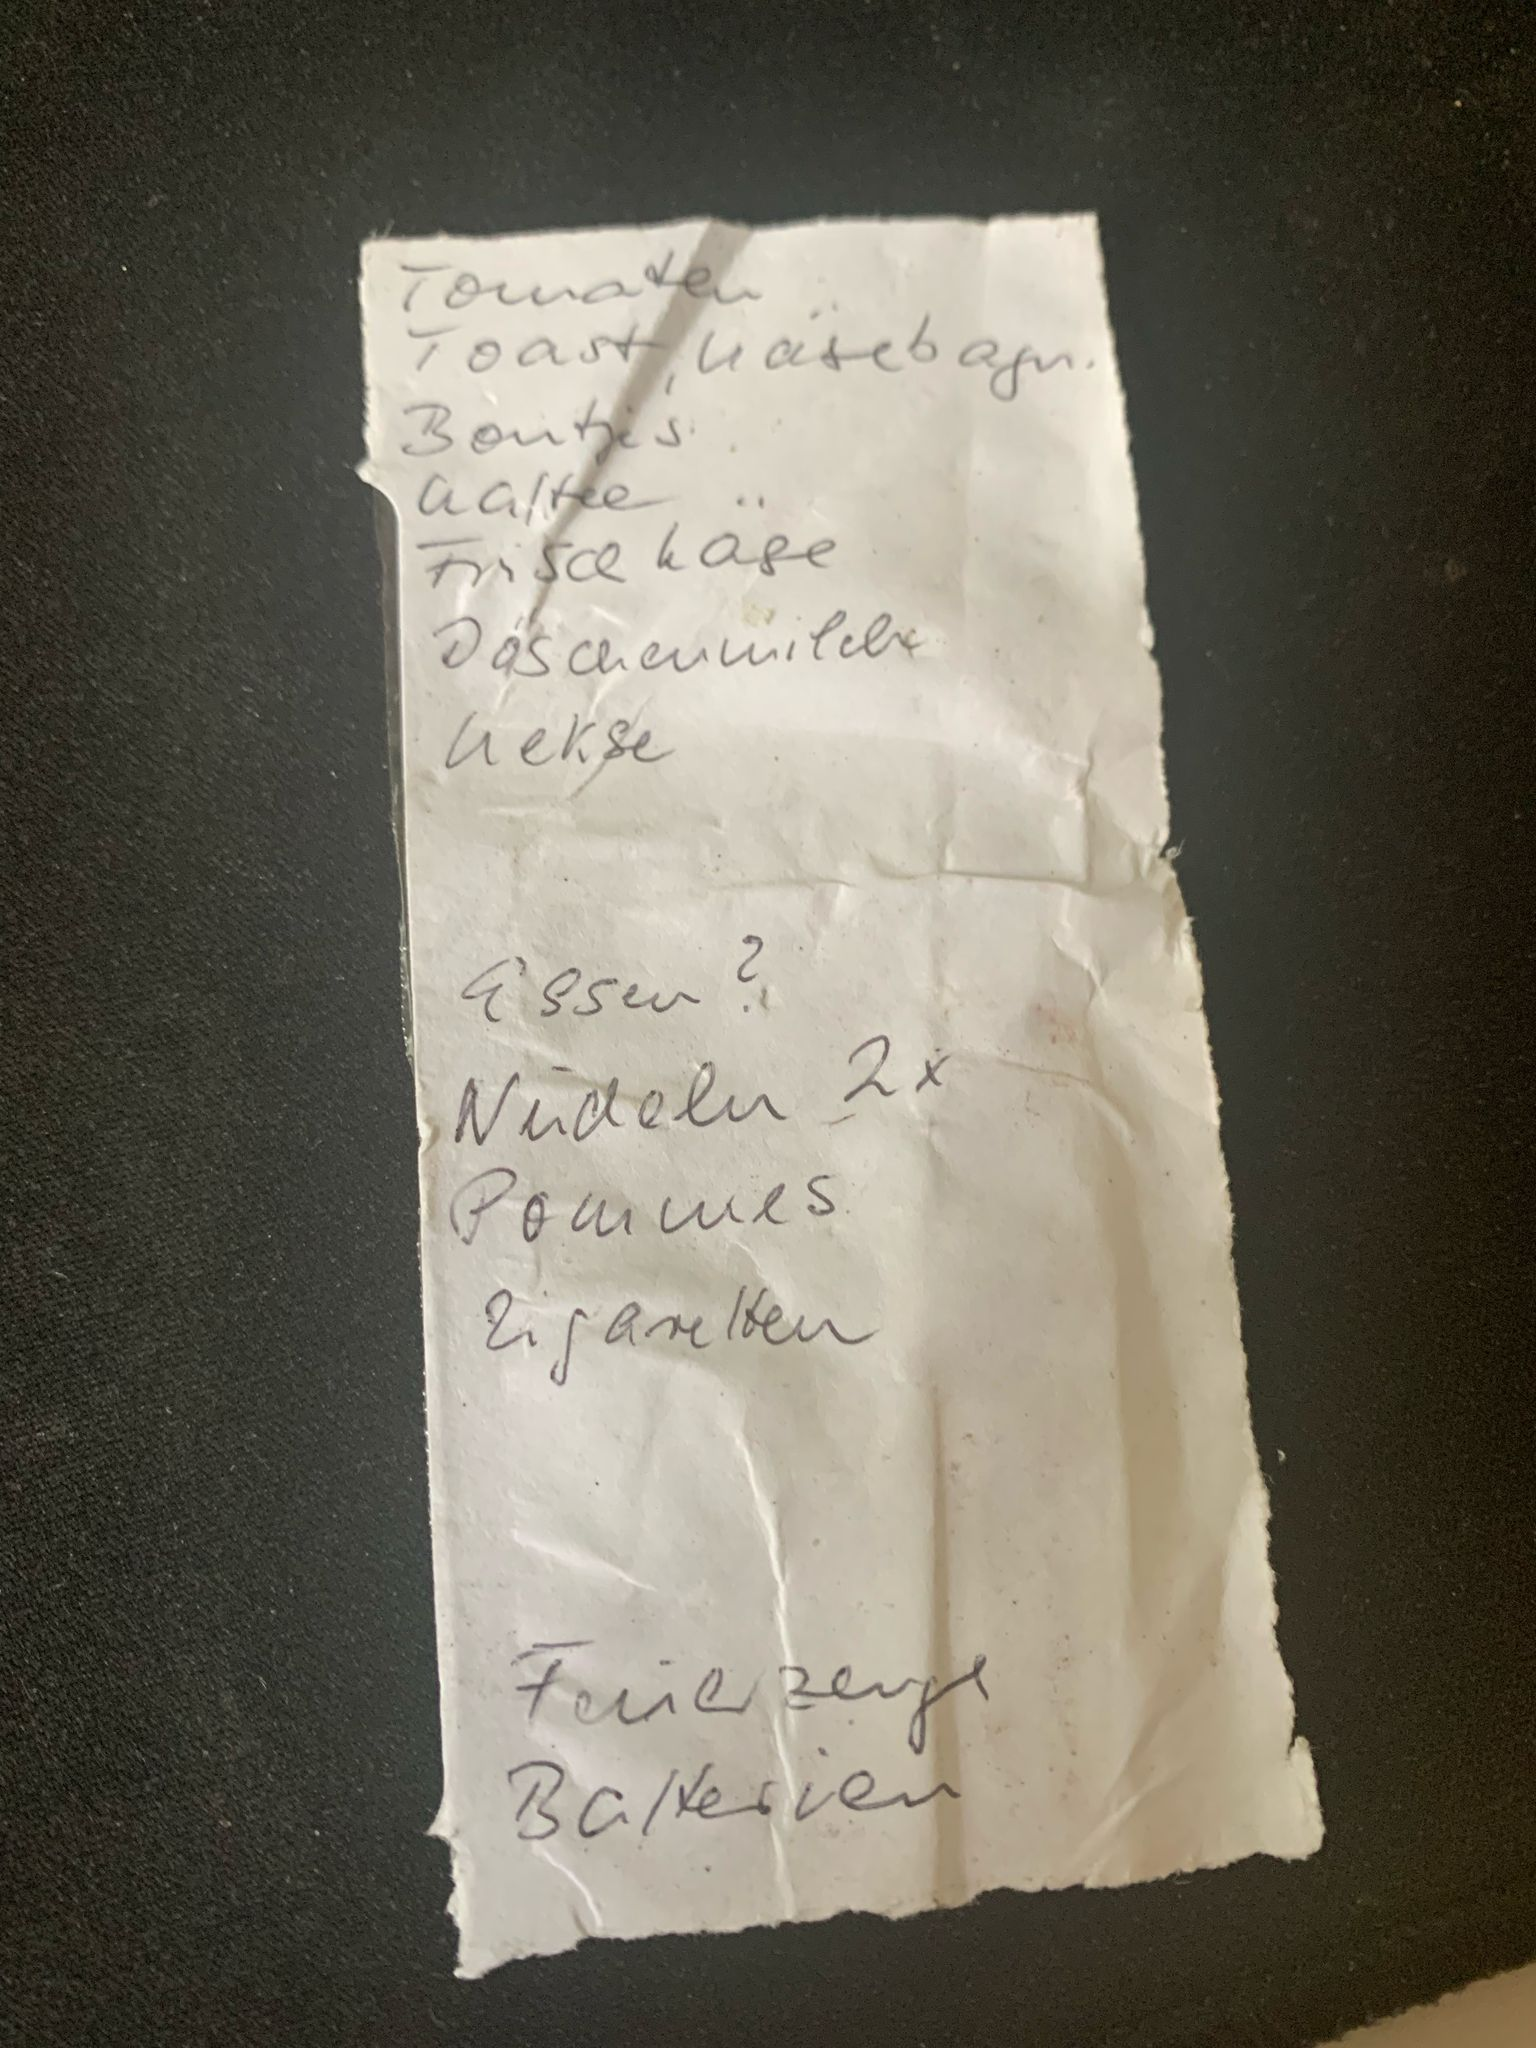 Tomaten
Toast, Käsebagu.
Bontjes
Kaffee
Frischkäse
Döschenmilch
Kekse
Essen?
Nudeln 2x
Pommes
Zigaretten
Feuerzeuge
Batterien